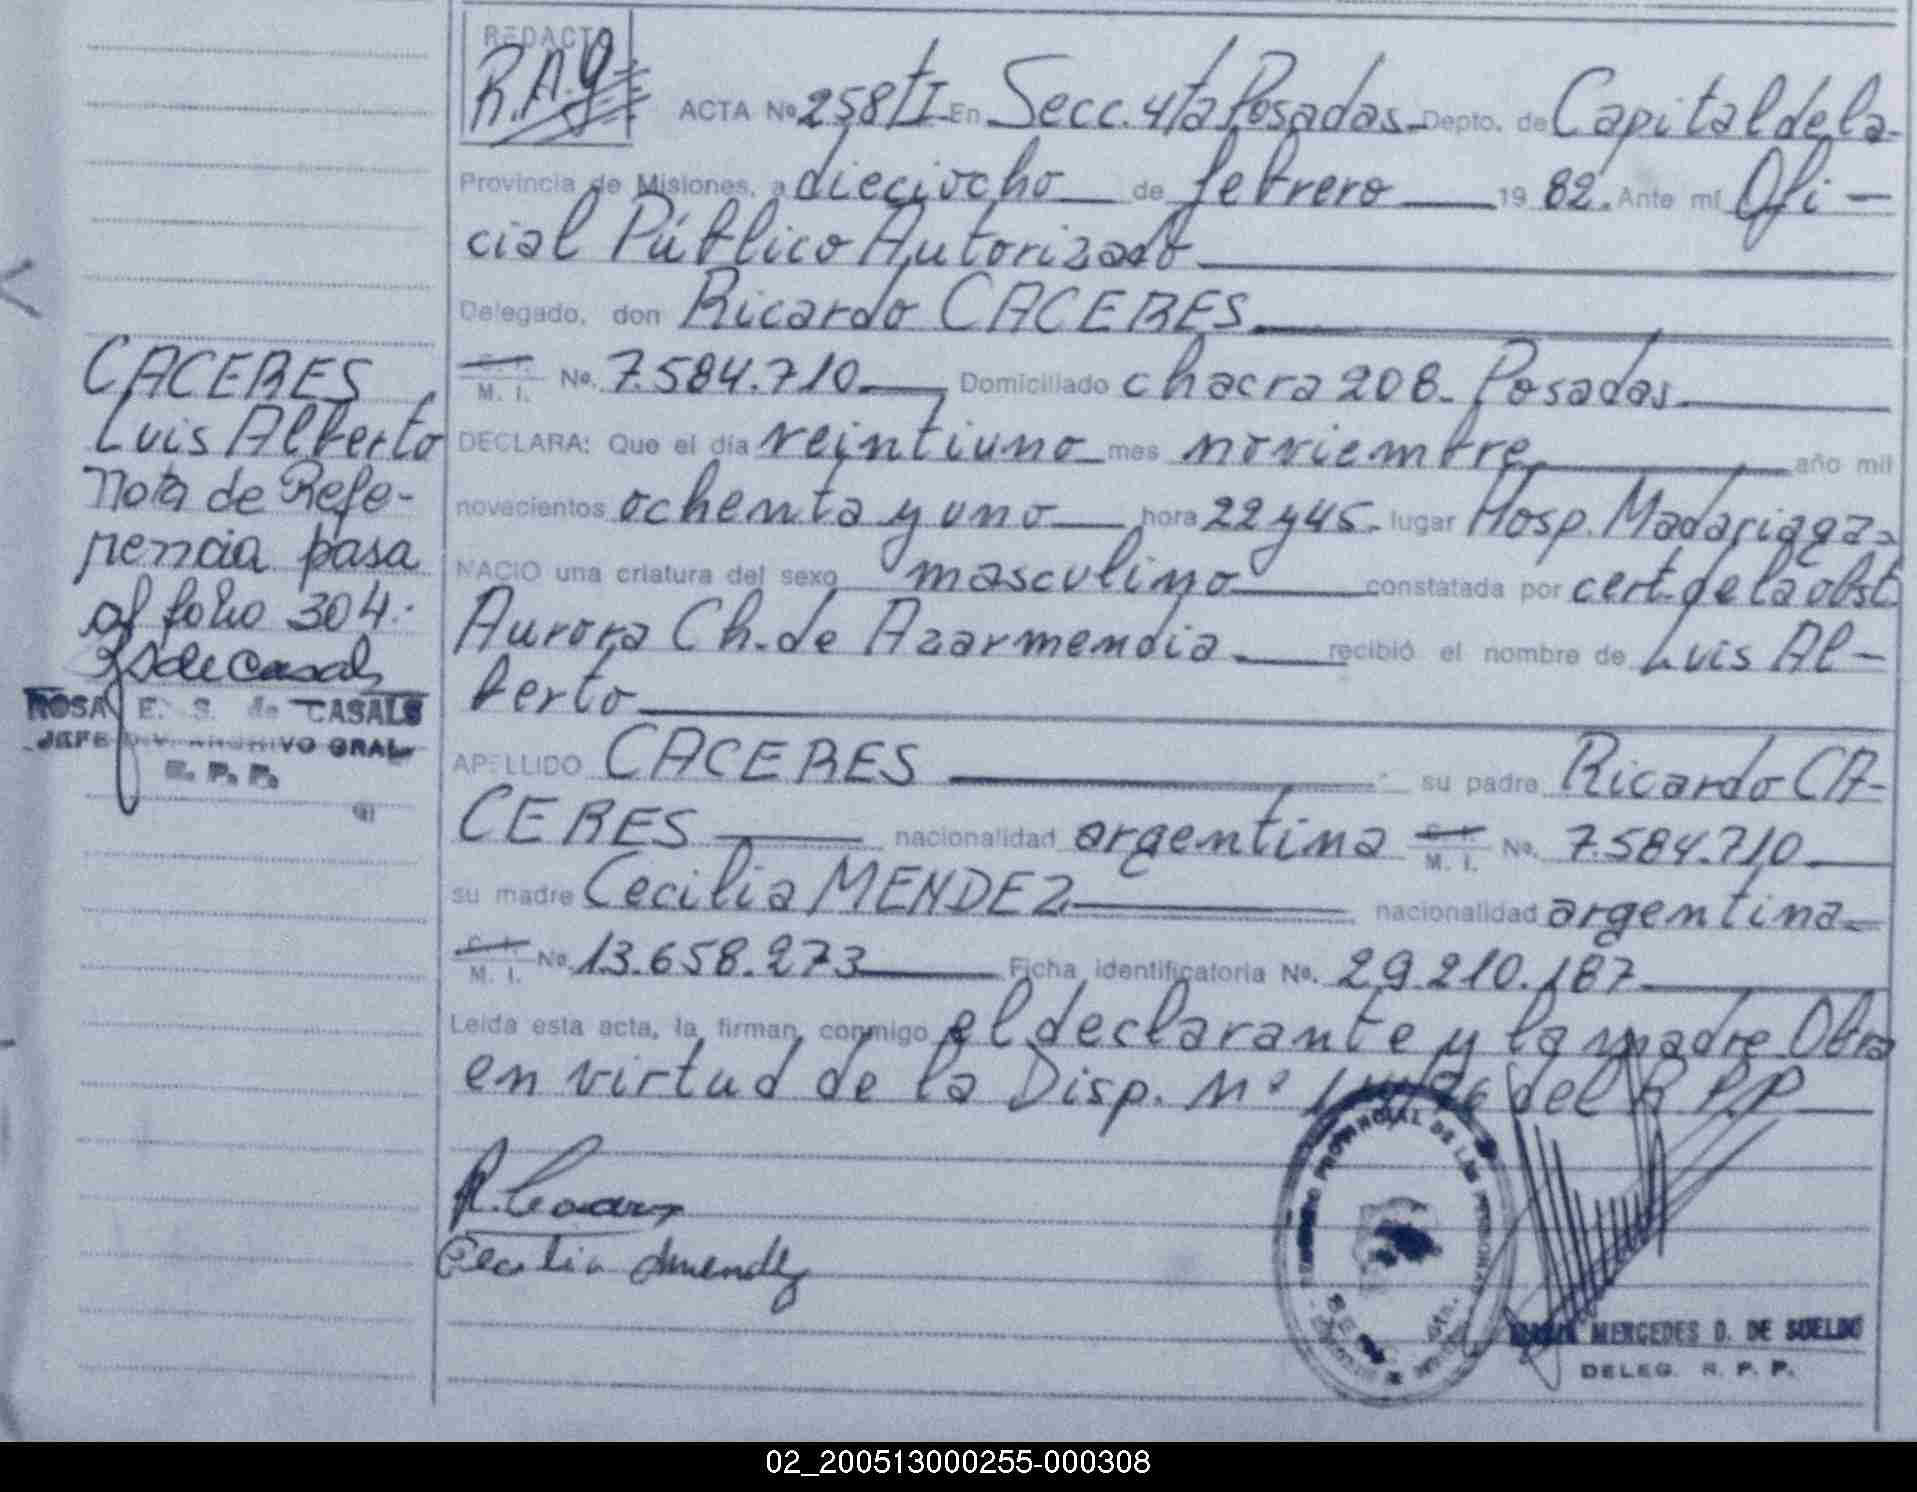 REDACTO
R.A.g
ACTA Nº 258 tI En Secc. 4ta Posadas Depto. de Capital de la
Provincia de Misiones, a dieciocho de febrero 1982. Ante mí Ofi-
cial Público Autorizado
Delegado, don Ricardo CACERES
C. I. M. I. No. 7.584.710 Domiciliado chacra 208. Posadas
DECLARA: Que el día veintiuno mes noviembre año mil
novecientos ochenta y uno hora 22 y 45. lugar Hosp. Madariaga
NACIO una criatura del sexo masculino constatada por cert. de la obst.
Aurora Ch. de Azarmendia recibió el nombre de Luis Al-
berto
APELLIDO CACERES su padre Ricardo CA-
CERES nacionalidad argentina C. I. M. I. No. 7.584.710
su madre Cecilia MENDEZ nacionalidad argentina
C. I. M. I. No. 13.658.273 Ficha identificatoria No. 29.210.187
Leída esta acta, la firman conmigo el declarante y la madre. Obra
en virtud de la Disp. Nº del R.P.P
CACERES
Luis Alberto
Nota de Refe-
rencia pasa
al folio 304.-
ROSA E. S. de CASALS
JEFE DIV. ARCHIVO GRAL
R. P. P.
PROVINCIAL DE LAS PERSONAS
MERCEDES D. DE SUELDO
DELEG. R. P. P.
02_200513000255-000308